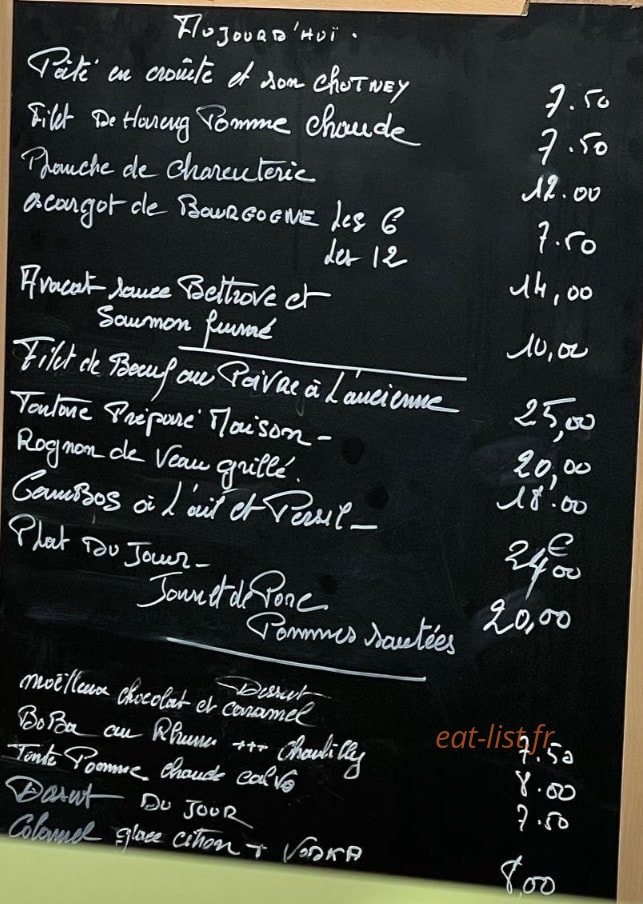 AUJOURD'HUÏ.
Pâté en croûte et son CHUTNEY 7.50
Filet De Hareng Pomme chaude 7.50
Planche de charcuterie 12.00
escargot de BOURGOGNE les 6 7.50
des 12 14,00
Avocat sauce Bettrove et
Saumon fumé 10,00
Filet de Boeuf au Poivre à L'ancienne 25,00
Tartare Préparé Maison - 20,00
Rognon de Veau grillé. 18.00
GamBas à L'ail et Persil - 24€00
Plat DU Jour -
de Porc 20,00
Pommes sautées
Dessert
moëlleux chocolat et caramel 7.50
BaBa au Rhum +++ chantilly 8.00
Tarte Pomme chaude calva 7.50
Desert DU JOUR
Colonel glace citron + VODKA 8,00
eat-list.fr